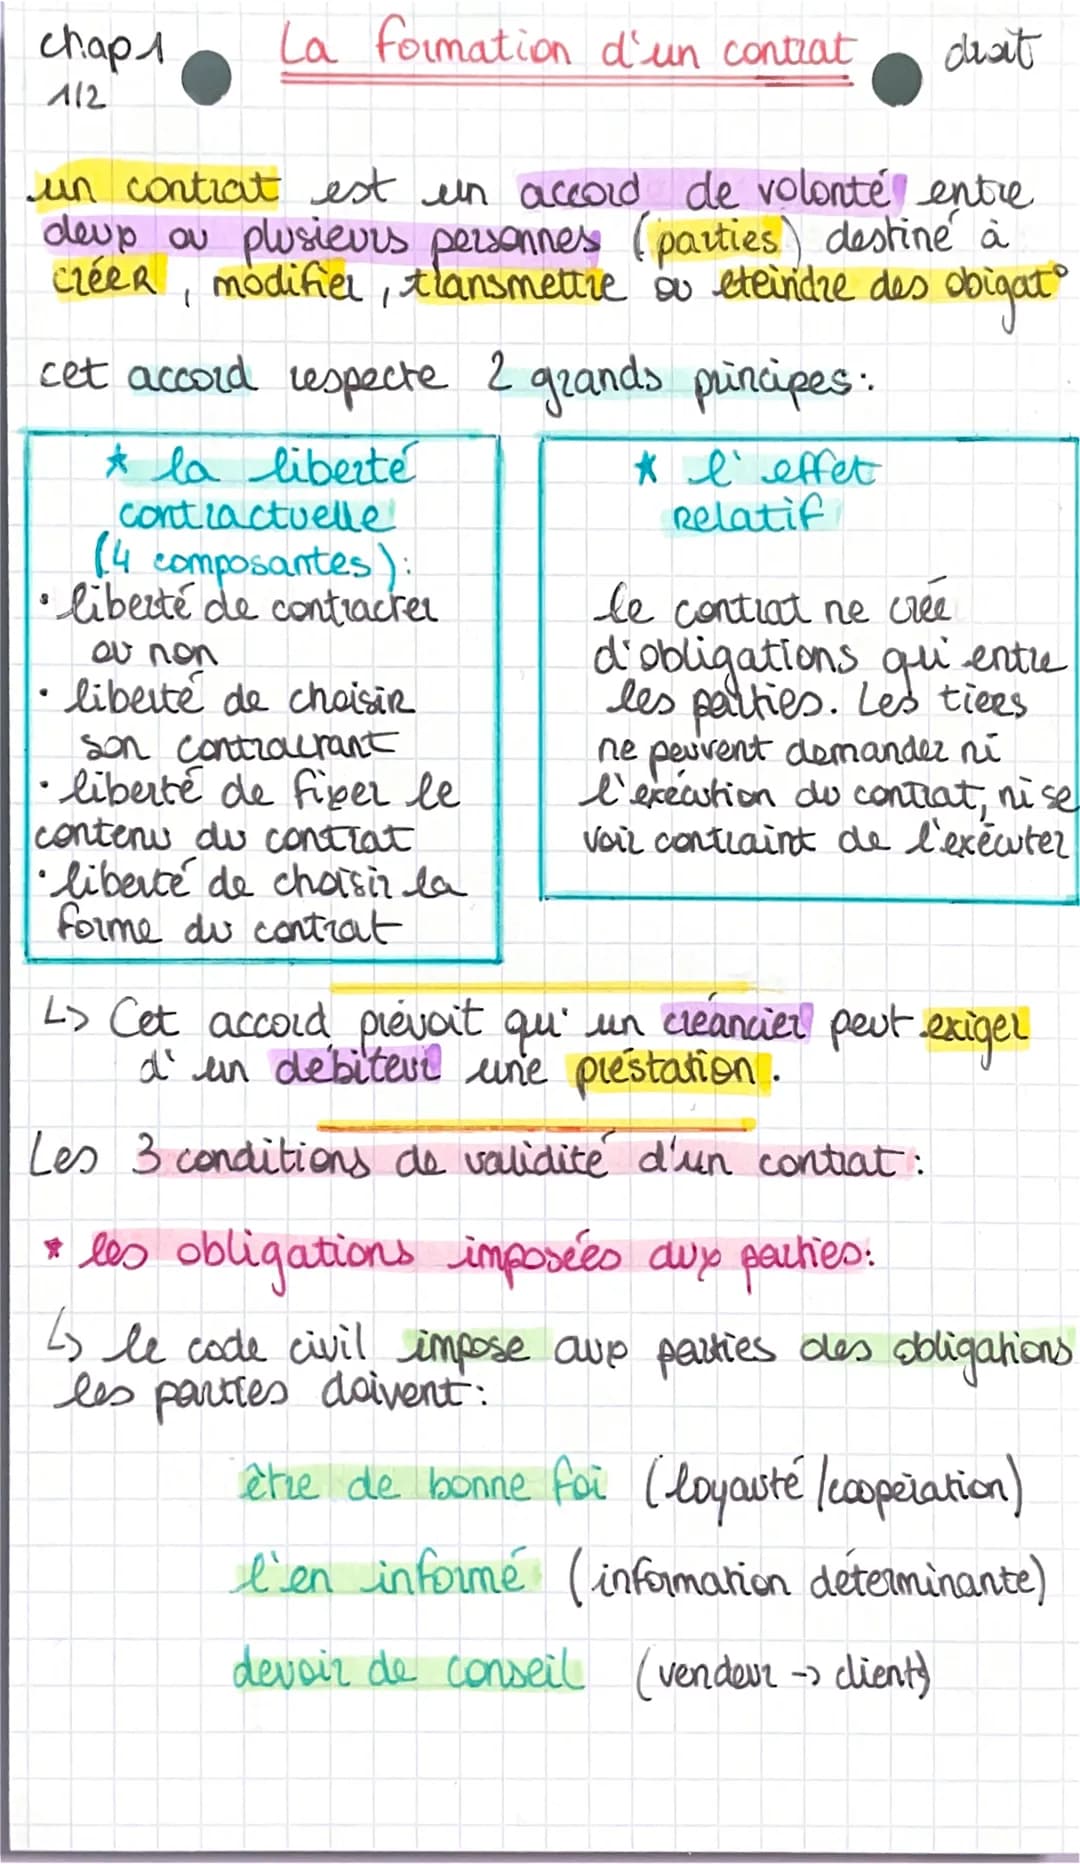 chap 1
La formation d'un contrat
droit
1/2
un contrat est un accord de volonté entre
deux ou plusieurs personnes (parties) destiné à
créer, modifier, transmettre ou eteindre des obigat°
cet accord respecte 2 grands principes:
* la liberté
contractuelle
(4 composantes):
• liberté de contracter
ou non
• liberté de choisir
son contractant
• liberté de fixer le
contenu du contrat
• liberté de choisir la
forme du contrat
* l'effet
relatif
le contrat ne crée
d'obligations qu'entre
les parties. Les tiers
ne peuvent demander ni
l'exécution du contrat, ni se
voir contraint de l'exécuter
↳ Cet accord prévoit qu'un créancier peut exiger
d'un débiteur une préstation.
Les 3 conditions de validité d'un contrat:
* les obligations imposées aux parties:
↳ le code civil impose aux parties des obligations
les parties doivent:
être de bonne foi (loyauté/coopération)
l'en informé (information déterminante)
devoir de conseil (vendeur -> client)